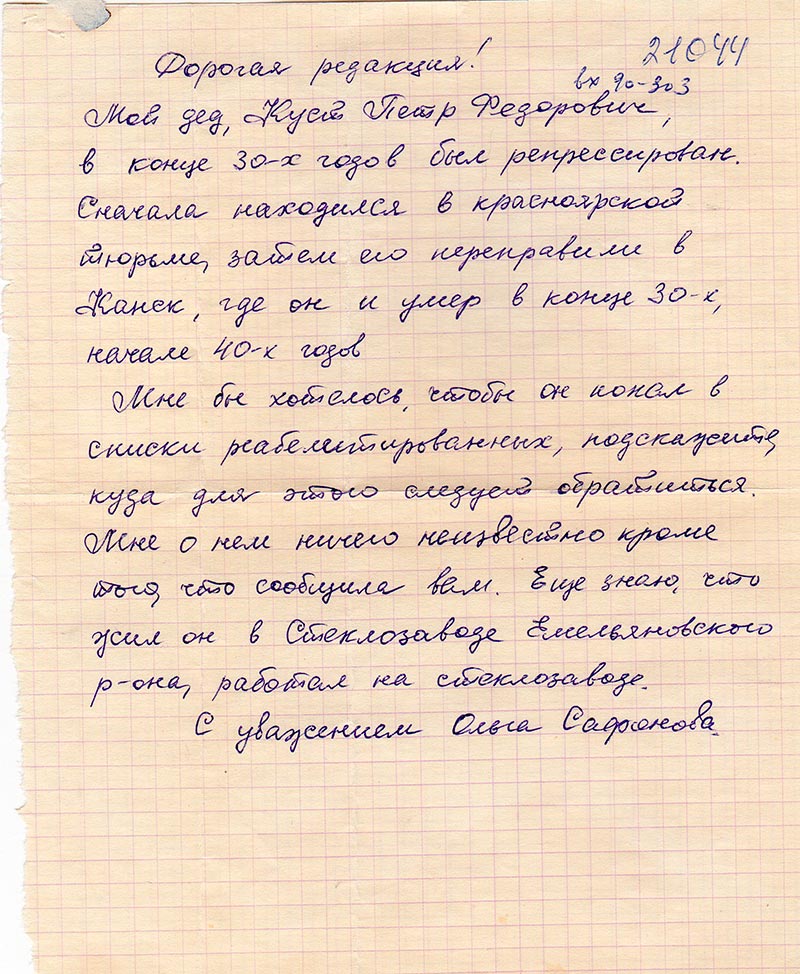 21044
Дорогая редакция!
вх 90-303
Мой дед, Куст Петр Федорович,
в конце 30-х годов был репрессирован.
Сначала находился в красноярской
тюрьме, затем его переправили в
Канск, где он и умер в конце 30-х,
начале 40-х годов
Мне бы хотелось, чтобы он попал в
списки реабелитированных, подскажите,
куда для этого следует обратиться.
Мне о нем ничего неизвестно кроме
того, что сообщила вам. Еще знаю, что
жил он в Стеклозаводе Емельяновского
р-она, работал на стеклозаводе.
С уважением Ольга Сафонова.